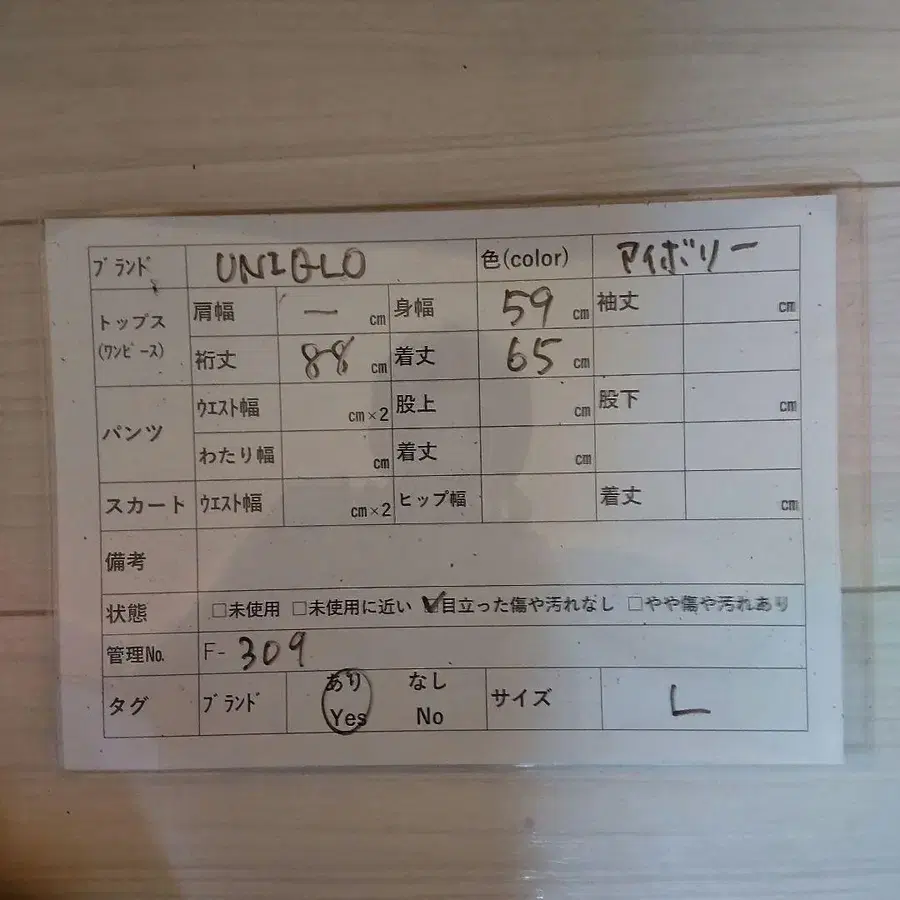 ブランド UNIQLO 色(color) アイボリー
トップス (ワンピース) 肩幅 — cm 身幅 59 cm 袖丈 cm
裄丈 88 cm 着丈 65 cm
パンツ ウエスト幅 cm×2 股上 cm 股下 cm
わたり幅 cm 着丈 cm
スカート ウエスト幅 cm×2 ヒップ幅 着丈 cm
備考
状態 □未使用 □未使用に近い ☑目立った傷や汚れなし □やや傷や汚れあり
管理No. F- 309
タグ ブランド あり Yes なし No サイズ L